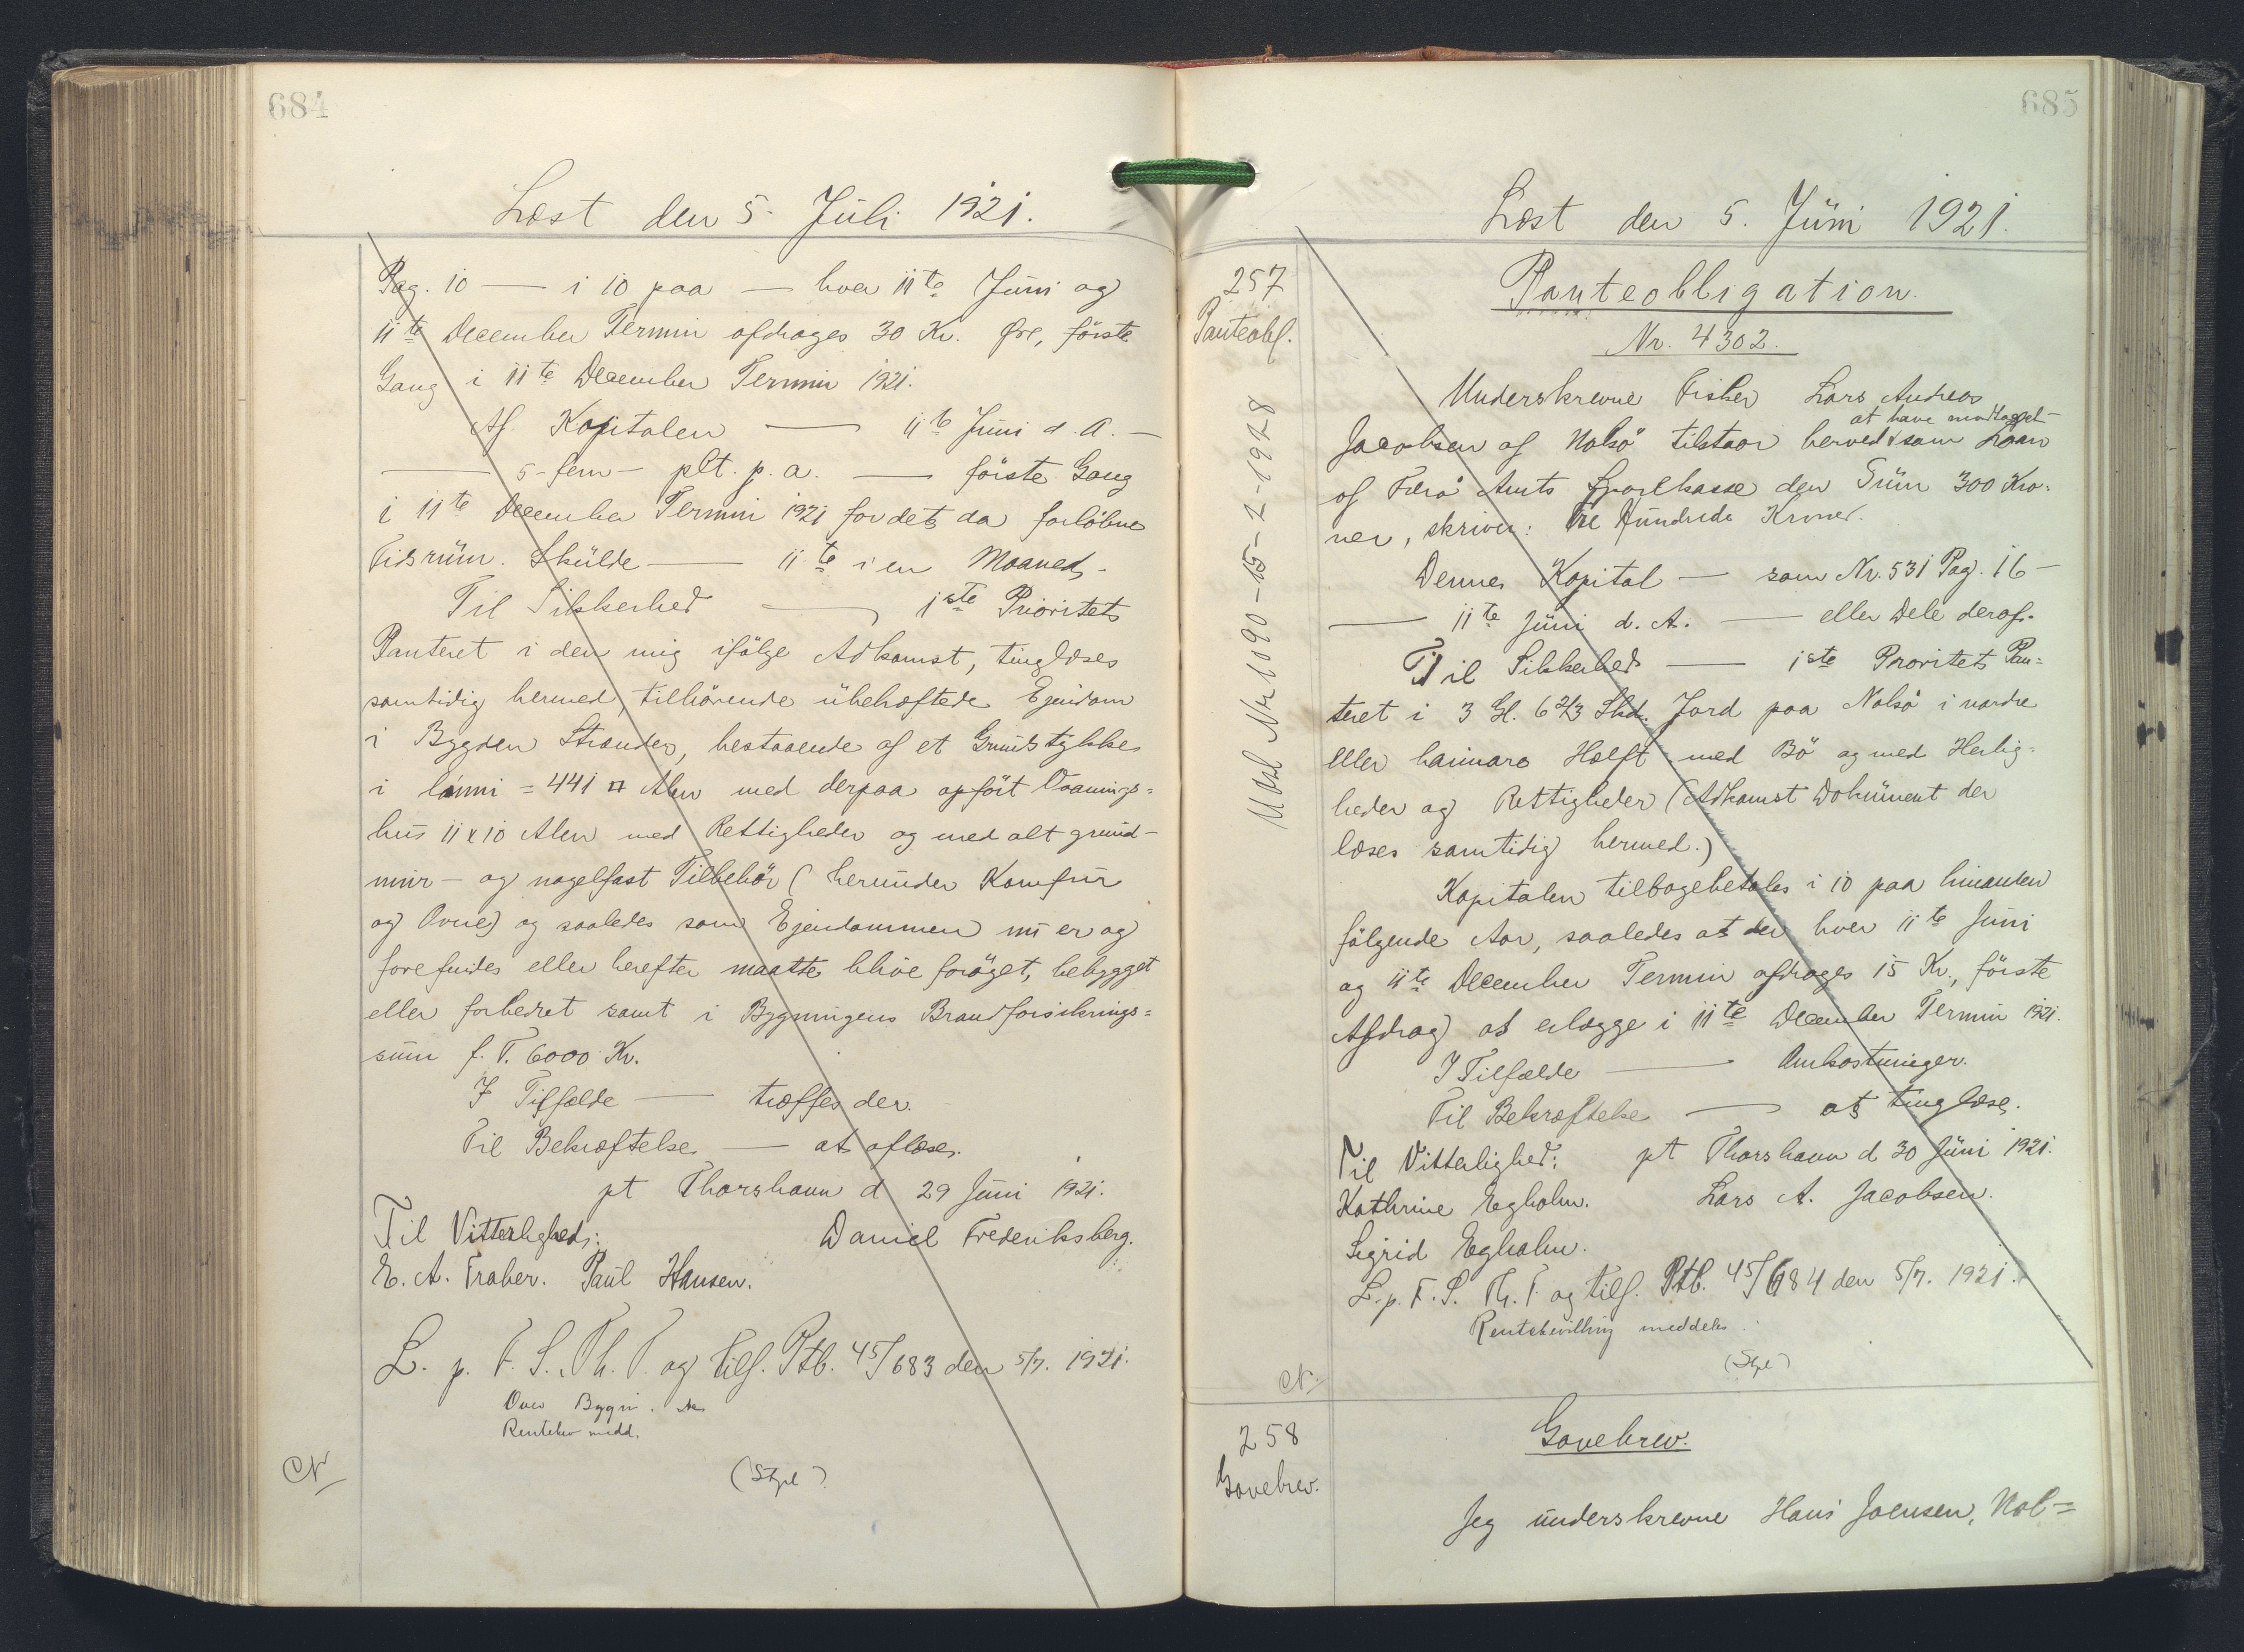 684
Læst den 5. Juli 1921.
Pag. 10 — i 10 paa — hver 11te Juni og
11te December Termin afdrages 30 Kr. Øre, første
Gang i 11te December Termin 1921.
Af Kapitalen — 11te Juni d. A. —
— 5 - fem - pCt. p. a. — første Gang
i 11te December Termin 1921 for det da forløbne
Tidsrum. Skulde — 11te i en Maaned.
Til Sikkerhed — 1ste Prioritets
Panteret i den mig ifølge Adkomst, tinglæses
samtidig hermed, tilhørende ubehæftede Ejendom
i Bygden Strænder, bestaaende af et Grundstykke
i = 441 □ Alen med derpaa opført Vaanings=
hus 11 x 10 Alen med Rettigheder og med alt grund-
mur - og nagelfast Tilbehør (herunder Komfur
og Ovne) og saaledes som Ejendommen nu er og
forefindes eller herefter maatte blive forøget, bebygget
eller forbedret samt i Bygningens Brandforsikrings=
sum f. T. 6000 Kr.
I Tilfælde — træffes der.
Til Bekræftelse — at aflæse.
pt Thorshavn d 29 Juni 1921.
Til Vitterlighed: Daniel Frederiksberg.
E. A. Traber. Paul Hansen.
L. p. F. S. Th. T. og tilf. Ptb. 45/683 den 5/7. 1921.
Over Bygn.
Rentebev medd.
CN
(Stpl)
685
Læst den 5. Juni 1921.
257
Panteobl.
Udsl Nr 1090-15-2-1928
Panteobligation.
Nr. 4302.
Underskrevne Fisker Lars Andreas
at have modtaget
Jacobsen af Nolsø tilstaar herved som Laan
af Færø Amts Sparekasse den Sum 300 Kro-
ner, skriver: Tre Hundrede Kroner.
Denne Kapital — som Nr. 531 Pag. 16 —
— 11te Juni d. A. — eller Dele deraf.
Til Sikkerhed — 1ste Prioritets Pan=
teret i 3 Gl. 6 2/3 Skd. Jord paa Nolsø i nordre
eller haimara Hælft med Bø og med Herlig=
heder og Rettigheder (Adkomst Dokument der
læses samtidig hermed.)
Kapitalen tilbagebetales i 10 paa hinanden
følgende Aar, saaledes at der hver 11te Juni
og 11te December Termin afdrages 15 Kr., første
Afdrag at erlægge i 11te December Termin 1921.
I Tilfælde — Omkostninger.
Til Bekræftelse — at tinglæse.
Til Vitterlighed: pt Thorshavn d 30 Juni 1921.
Kathrine Egholm. Lars A. Jacobsen.
Sigrid Egholm.
L. p. F. S. Th. T. og tilf. Ptb. 45/684 den 5/7. 1921.
Rentebevilling meddeles.
(Stpl)
CN.
258
Gavebrev.
Gavebrev.
Jeg underskrevne Hans Joensen, Nol=